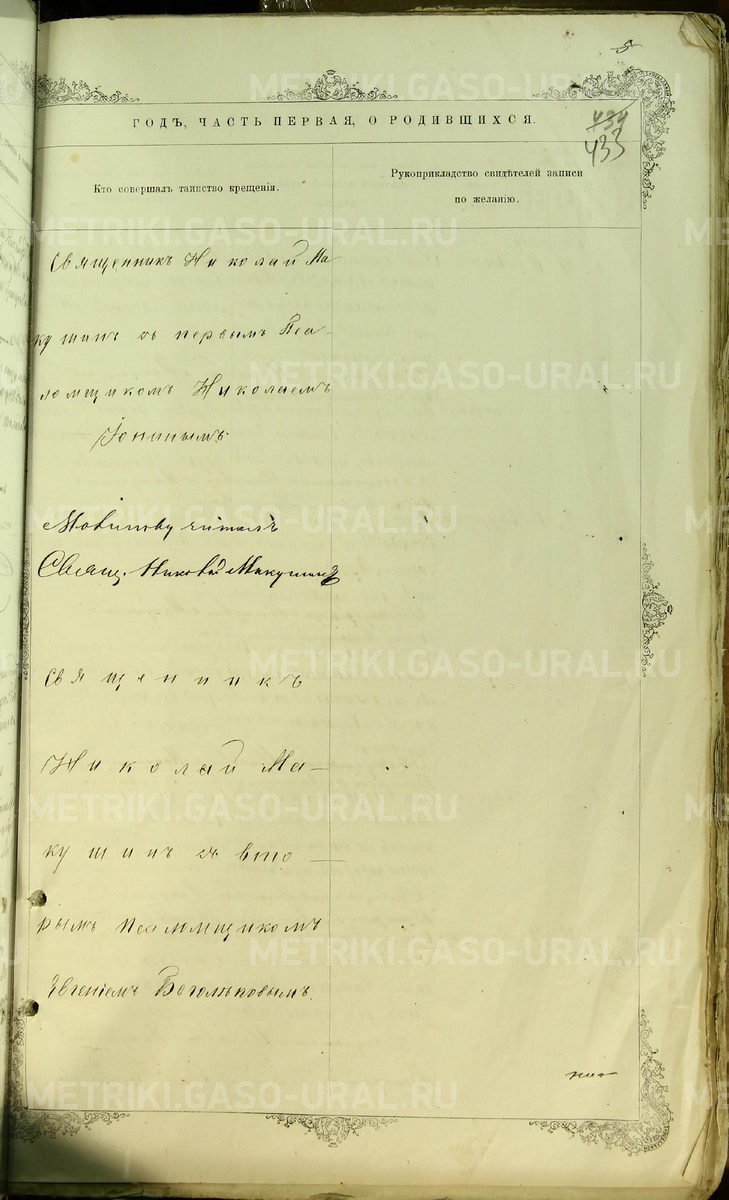 5
ГОДЪ, ЧАСТЬ ПЕРВАЯ, О РОДИВШИХСЯ.
434
433
Кто совершалъ таинство крещенія.
Рукоприкладство свидѣтелей записи
по желанію.
Священникъ Николай Ма
кушинъ съ первымъ Пса-
ломщикомъ Николаемъ
Іонинымъ
Молитву читалъ
Свящ. Николай Макушинъ
Священникъ
Николай Ма-
кушинъ съ вто-
рымъ псаломщикомъ
Евгеніемъ Боголѣповымъ.
METRIKI.GASO-URAL.RU